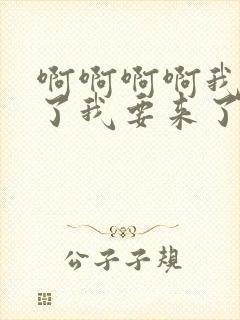 啊啊啊啊我
了我要来了
公子子规